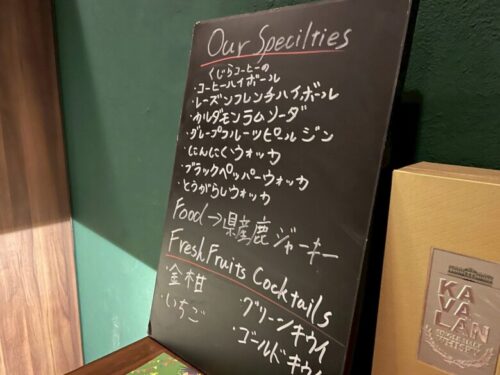 Our Specilties
くじらコーヒーの
・コーヒーハイボール
・レーズンフレンチハイボール
・カルダモンラムソーダ
・グレープフルーツピール ジン
・にんにくウォッカ
・ブラックペッパーウォッカ
・とうがらしウォッカ
Food→県産鹿 ジャーキー
Fresh Fruits Cocktails
・金柑
・いちご
・グリーンキウイ
・ゴールドキウイ
KA
VA
LAN
SINGLE MALT
WHISKY